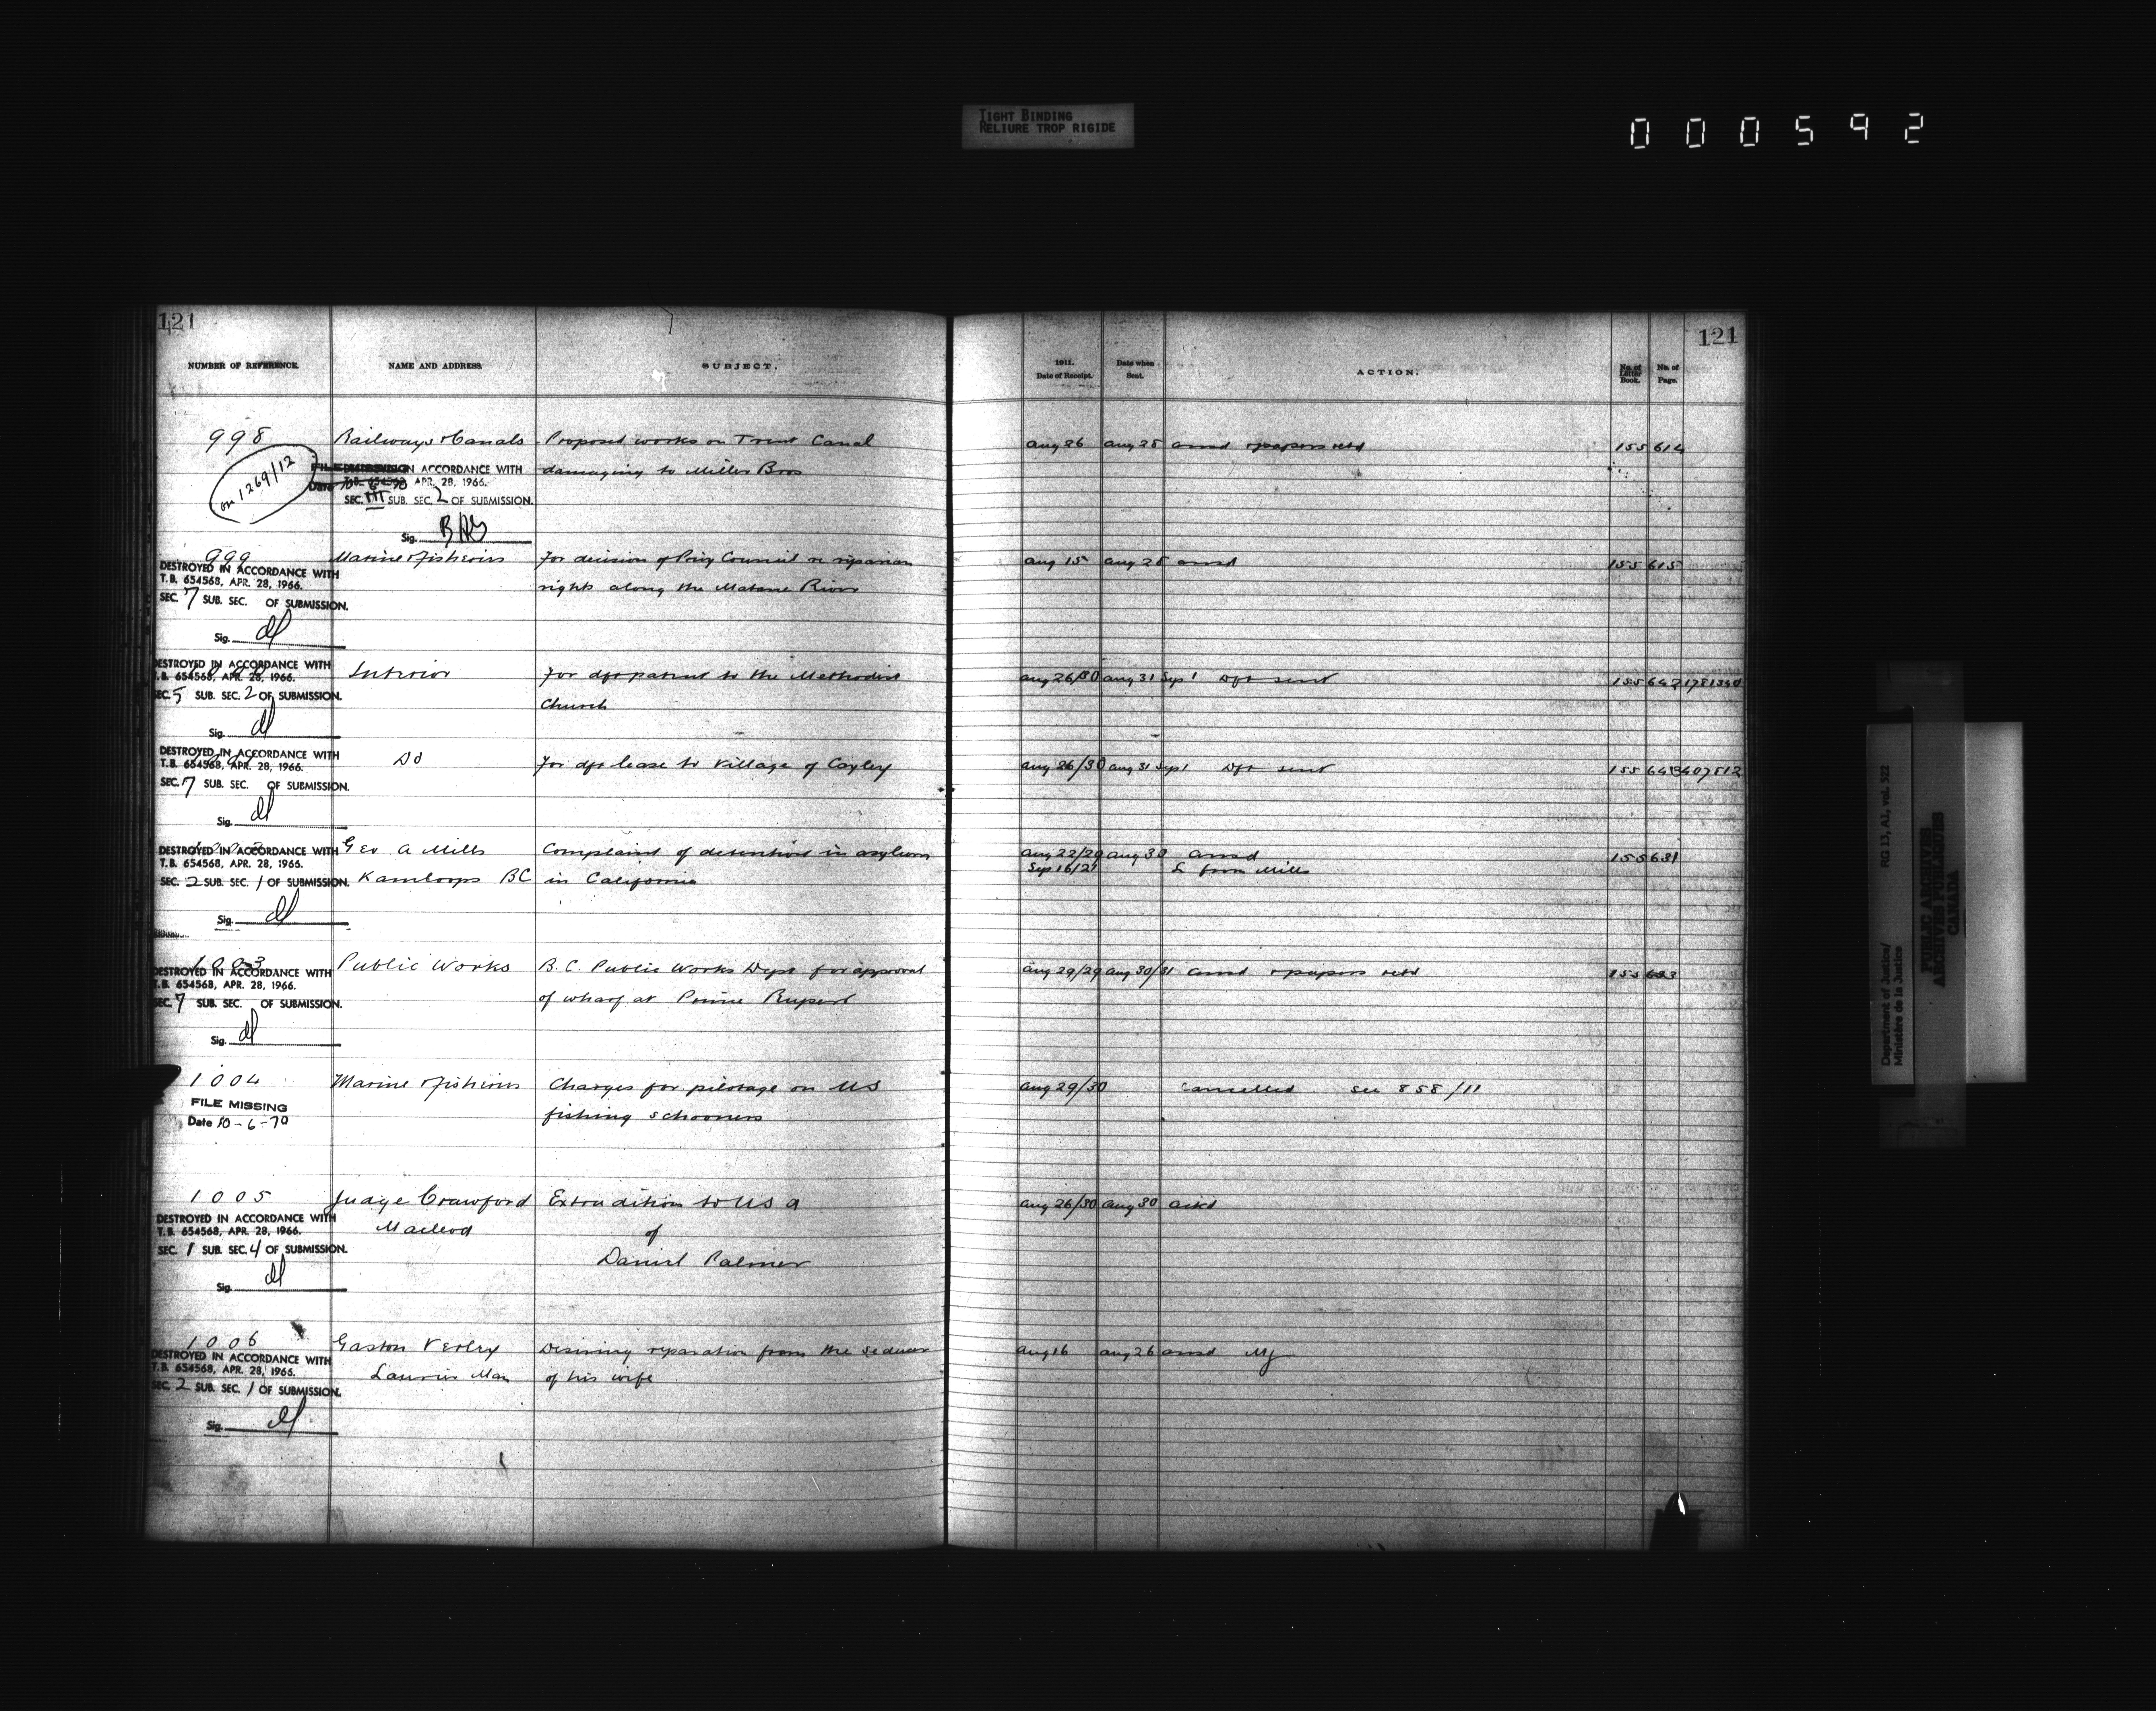 TIGHT BINDING
RELIURE TROP RIGIDE
0 0 0 5 9 2
121
NUMBER OF REFERENCE.
NAME AND ADDRESS.
SUBJECT.
1911.
Date of Receipt.
Date when
Sent.
ACTION.
No. of
Letter
Book.
No. of
Page.
121
998
Railways & Canals
Proposed works on Trent Canal
Aug 26
Aug 28
ansd & papers retd
155
614
on 1269/12
FILE MISSING
IN ACCORDANCE WITH
damaging to Miller Bros
Date 10-6-70
T.B. 654568 APR. 28, 1966.
SEC. III SUB. SEC. 2 OF SUBMISSION.
Sig.
999
Marine & Fisheries
For decision of Privy Council re riparian
Aug 15
Aug 28
ansd
155
615
DESTROYED IN ACCORDANCE WITH
T.B. 654568, APR. 28, 1966.
rights along the Matane River
SEC. 7 SUB. SEC. OF SUBMISSION.
Sig.
DESTROYED IN ACCORDANCE WITH
T.B. 654568, APR. 28, 1966.
Interior
For dft patent to the Methodist
Aug 26/30
Aug 31 Sep 1
Dft sent
155
SEC. 5 SUB. SEC. 2 OF SUBMISSION.
Church
Sig.
DESTROYED IN ACCORDANCE WITH
T.B. 654568, APR. 28, 1966.
Do
For dft lease to Village of Cayley
Aug 26/30
Aug 31 Sep 1
Dft sent
155
SEC. 7 SUB. SEC. OF SUBMISSION.
Sig.
DESTROYED IN ACCORDANCE WITH
Geo A Mills
Complaint of detention in asylum
Aug 22/29
Aug 30
ansd
155
631
T.B. 654568, APR. 28, 1966.
Sep 16/21
L from Mills
SEC. 2 SUB. SEC. 1 OF SUBMISSION.
Kamloops BC
in California
Sig.
1003
Public Works
B.C. Public Works Dept for approval
Aug 29/29
Aug 30/31
ansd & papers retd
155
DESTROYED IN ACCORDANCE WITH
T.B. 654568, APR. 28, 1966.
of wharf at Prince Rupert
SEC. 7 SUB. SEC. OF SUBMISSION.
Sig.
1004
Marine & Fisheries
Charges for pilotage on US
Aug 29/30
Cancelled see 858/11
FILE MISSING
fishing schooners
Date 10-6-70
1005
Judge Crawford
Extradition to US A
Aug 26/30
Aug 30
ackd
DESTROYED IN ACCORDANCE WITH
T.B. 654568, APR. 28, 1966.
Macleod
of
SEC. 1 SUB. SEC. 4 OF SUBMISSION.
Daniel Palmer
Sig.
1006
Gaston
Desiring reparation from the seducer
Aug 16
Aug 26
ansd
DESTROYED IN ACCORDANCE WITH
T.B. 654568, APR. 28, 1966.
Man
of his wife
SEC. 2 SUB. SEC. 1 OF SUBMISSION.
Sig.
Department of Justice/
Ministère de la Justice
RG 13, A1, vol. 522
PUBLIC ARCHIVES
ARCHIVES PUBLIQUES
CANADA